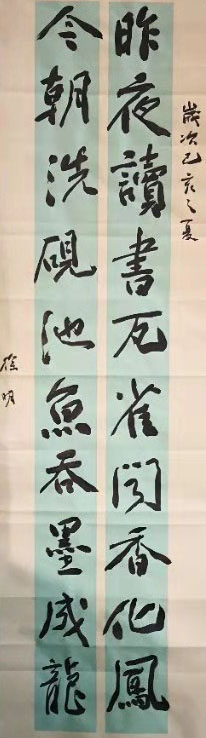 歲次己亥之夏
昨夜讀書瓦雀聞香化鳳
今朝洗硯池魚吞墨成龍
徐明